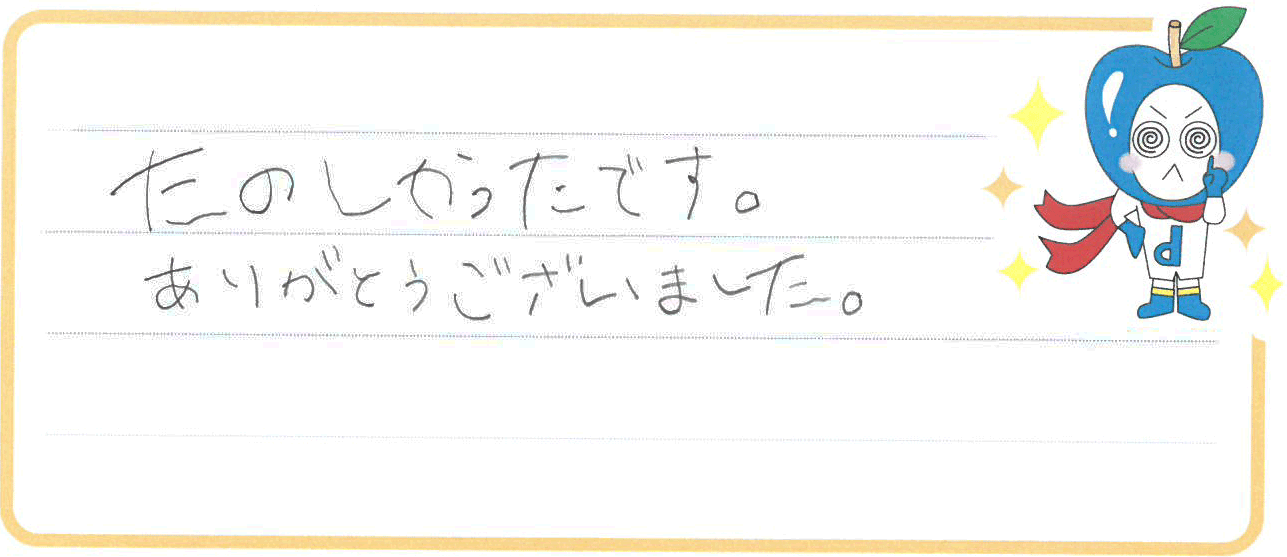 たのしかったです。
ありがとうございました。
d